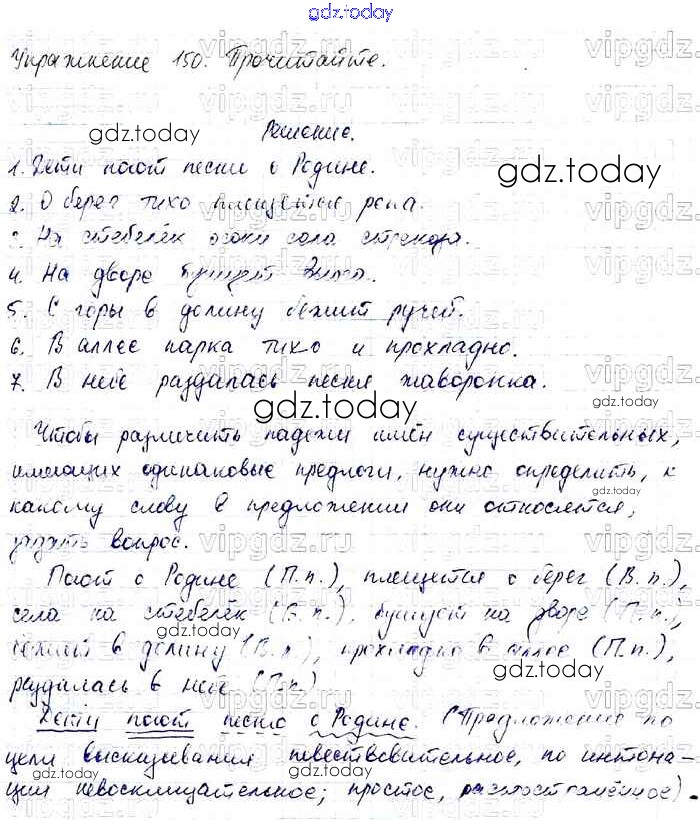 gdz.today
Упражнение 150. Прочитайте.
gdz.today
Решение.
gdz.today
1. Дети поют песни о Родине.
2. О берег тихо плещется река.
3. На стебелёк осоки села стрекоза.
4. На дворе бушует зима.
5. С горы в долину бежит ручей.
6. В аллее парка тихо и прохладно.
7. В небе раздалась песня жаворонка.
gdz.today
gdz.today
Чтобы различить падежи имён существительных,
имеющих одинаковые предлоги, нужно определить, к
gdz.today
какому слову в предложении они относятся,
задать вопрос.
Поют о Родине (П.п.), плещется о берег (В.п.),
села на стебелёк (В.п.), бушует на дворе (П.п.),
gdz.today
бежит в долину (В.п.), прохладно в аллее (П.п.),
gdz.today
раздалась в небе (П.п.)
Дети поют песню о Родине. (Предложение по
gdz.today
цели высказывания повествовательное, по интона-
gdz.today
ции невосклицательное; простое, распространённое).
gdz.today